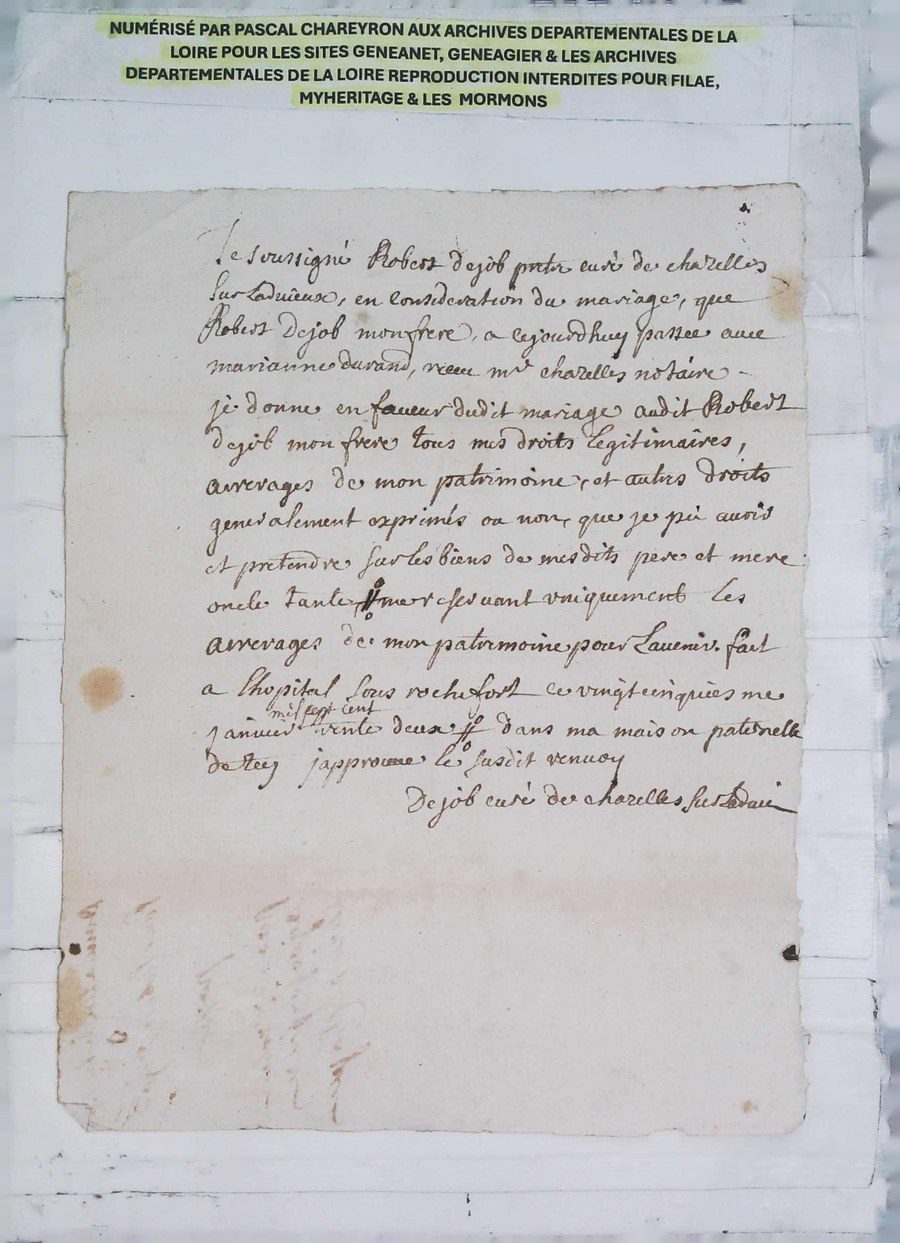 NUMÉRISÉ PAR PASCAL CHAREYRON AUX ARCHIVES DEPARTEMENTALES DE LA
LOIRE POUR LES SITES GENEANET, GENEAGIER & LES ARCHIVES
DEPARTEMENTALES DE LA LOIRE REPRODUCTION INTERDITES POUR FILAE,
MYHERITAGE & LES MORMONS
Je soussigné Robert Dejob pretr curé de chazelles
sur Laduieux, en consideration du mariage, que
Robert Dejob mon frere, a cejourdhuy passee avec
marianne durand, receu mr chazelles notaire -
je donne en faveur dudit mariage audit Robert
dejob mon frere tous mes droits legitimaires,
arrerages de mon patrimoine, et autres droits
generalement exprimés ou non, que je pü avoir
et pretendre sur les biens de mesdits pere et mere
oncle tante, me reservant uniquement les
arrerages de mon patrimoine pour Lavenir. fait
a lhopital sous rochefort ce vingt cinquiesme
mil sept cent
janvier trente deux dans ma maison paternelle
de japprouve le susdit renvoy
Dejob curé de chazelles sur